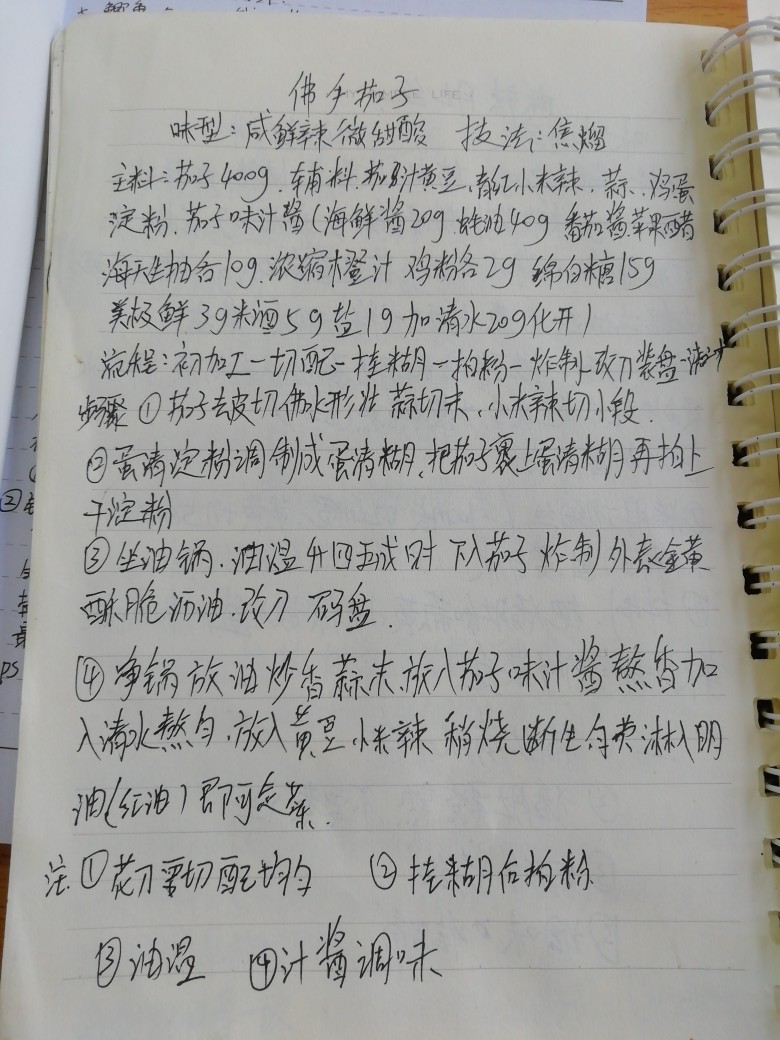 佛手茄子
味型:咸鲜辣微甜酸 技法:焦熘
主料:茄子400g.辅料.茄汁黄豆.青红小米辣.蒜.鸡蛋
淀粉.茄子味汁酱(海鲜酱20g 蚝油40g 番茄酱.苹果醋
海天生抽各10g.浓缩橙汁 鸡粉各2g 绵白糖15g
美极鲜3g米酒5g盐1g加清水20g化开)
流程:初加工一切配一挂糊一拍粉一炸制.改刀装盘一
步骤①茄子去皮切佛手形状 蒜切末.小米辣切小段.
②蛋清淀粉调制成蛋清糊.把茄子裹上蛋清糊再拍上
干淀粉
③坐油锅.油温升四五成时 下入茄子炸制 外表金黄
酥脆沥油.改刀 码盘.
④净锅放油炒香蒜末.放入茄子味汁酱熬香加
入清水熬匀.放入黄豆.小米辣 稍烧断生勾芡淋入明
油(红油)即可定菜.
注①花刀要切配均匀 ②挂糊后拍粉
③油温 ④汁酱调味